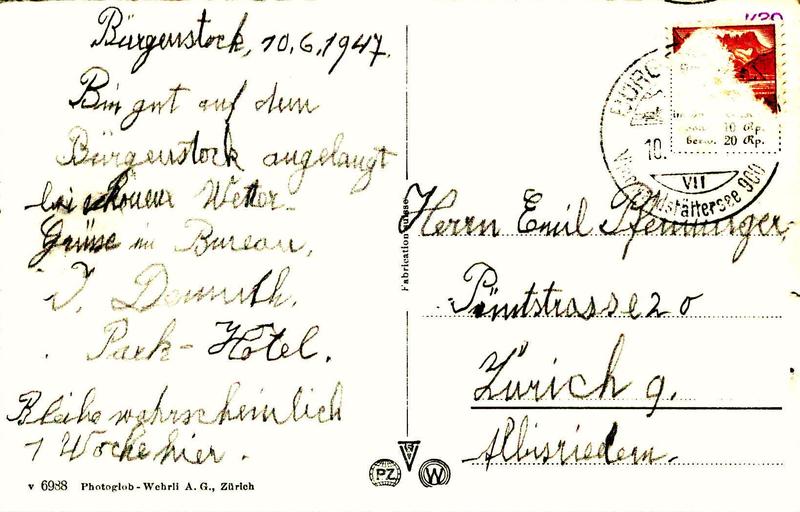 Bürgenstock, 10.6.1947.
Bin gut auf dem
Bürgenstock angelangt
bei schönem Wetter.
Grüsse im Bureau,
J. Demuth.
Park-Hotel.
Bleibe wahrscheinlich
1 Woche hier.
v 6988 Photoglob-Wehrli A. G., Zürich
Fabrication suisse
PZ
W
10 Rp.
bezw. 20 Rp.
10.
VII
Herrn Emil Pfenninger,
20
Zürich 9.
Albisrieden.